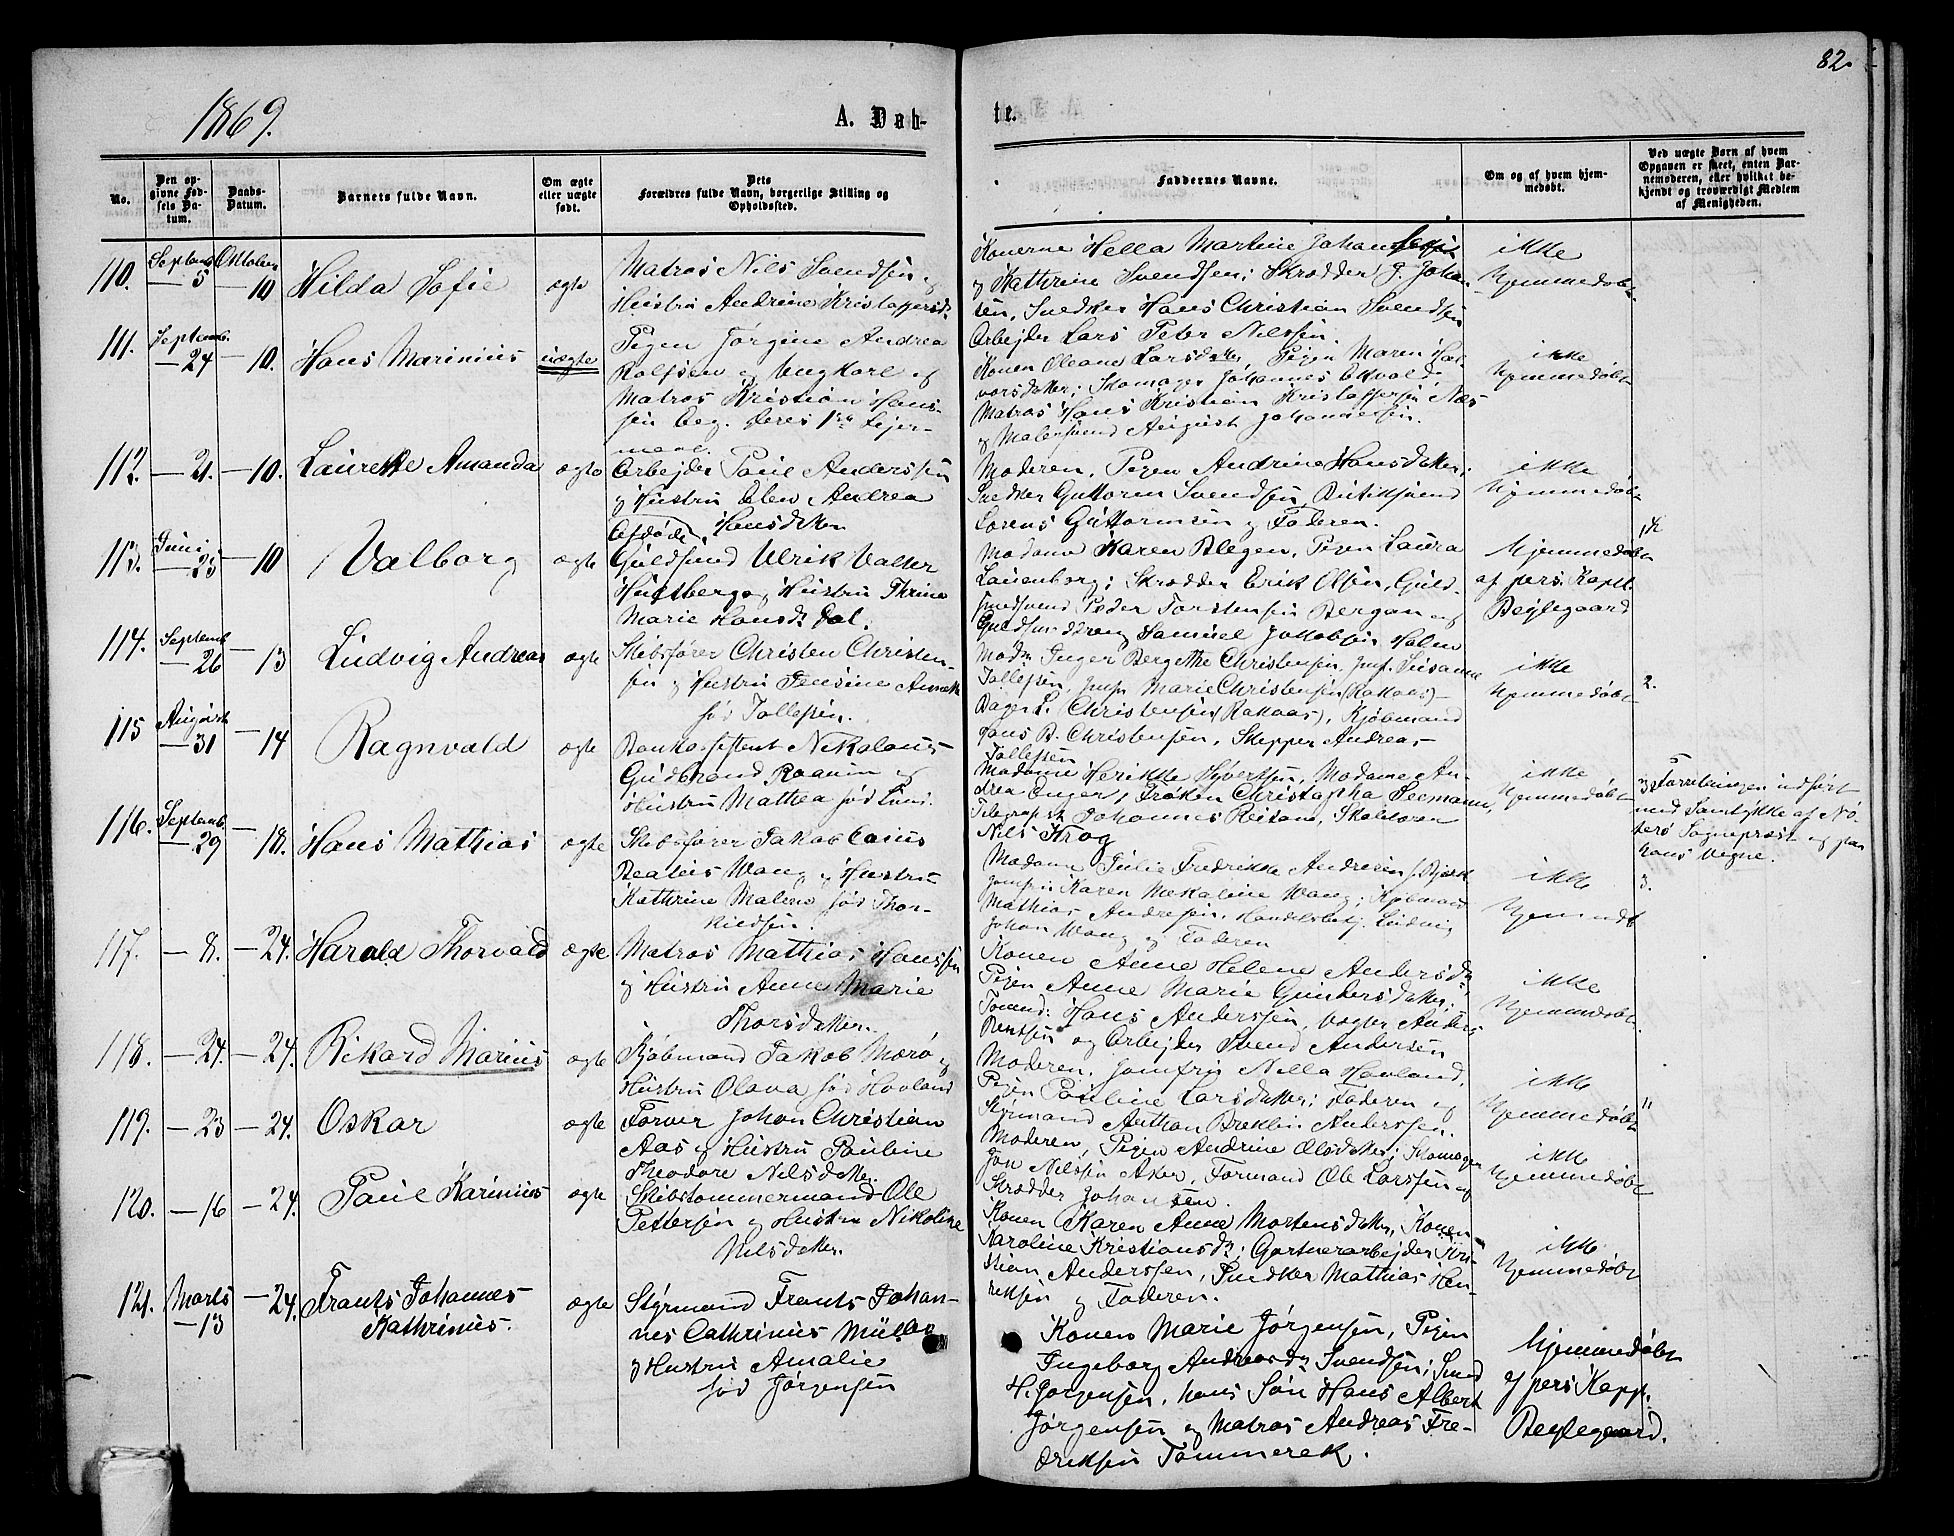 82.
1869.
A. Døb-
te.
No.
Den opgivne Fødsels Datum.
Daabs-Datum.
Barnets fulde Navn.
Om ægte eller uægte født.
Dets Forældres fulde Navn, borgerlige Stilling og Opholdssted.
Faddernes Navne.
Om og af hvem hjemmedøbt.
Ved uægte Børn af hvem Opgaven er skeet, enten Barnemoderen, eller hvilket bekjendt og troværdigt Medlem af Menigheden.
110. Septemb — 5 Oktober — 10 Hilda Sofie ægte
Matros Nils Svendsen og
Hustru Andrine Kristoffersd.
Konerne Hella Martine Johannesen
og Kathrine Svendsen; Skrædder J. Johan-
sen, Snedker Hans Christian Svendsen
Arbejder Lars Peter Nilssen.
ikke
hjemmedøbt
111. Septemb. — 24 — 10. Hans Marinius uægte
Pigen Jørgine Andrea
Rolfsen og Ungkarl og
Matros Kristian Hans-
sen beg. deres 1ste Lejer-
maal.
Konen Oleane Larsdatter, Pigen Maren Hal-
vorsdatter; Skomager Johannes Ekvold,
Matros Hans Kristian Kristoffersen Næs
og Malersvend August Johannesen.
ikke
hjemmedøbt
112. — 21. — 10. Laurette Amanda ægte
Arbejder Paul Anderssen
og Hustru Elen Andrea
Hansdatter
Moderen, Pigen Andrine Hansdatter;
Snedker Guttorm Svendsen, Butiksvend
Lorens Guttormsen og Faderen.
ikke
hjemmedøbt
113. Juni — 25 — 10 Valborg ægte
Afdøde
Guldsmed Ulrik Valter
og Hustru Thrine
Marie Hansd. Dal.
Madame Karen Blegen, Pigen Laura
Lauenborg; Skrædder Erik Olsen, Guld-
smedsvend Peder Torstensen Bergan og
Guldsmeddreng Samuel Jakobsen Holm
hjemmedøbt
af pers. Kapll.
Bejlegaard
114. Septemb — 26 — 13 Ludvig Andreas ægte
Skibsfører Christen Christen-
sen og Hustru Jensine Annette
fød Tollefsen.
Mad. Inger Bergethe Christensen, Jmf. Susanne
Tollefsen, Jmfr Marie Christensen (Rakaas)
Bager L. Christensen (Rakaas), Kjøbmand
Hans B. Christensen, Skipper Andreas
Tollefsen
ikke
hjemmedøbt
2.
115 August — 31 — 14 Ragnvald ægte
Bankassistent Nikolaus
Gudbrand Roanim og
Hustru Mathea fød Luni.
Madame Herikke Syvertsen, Madame An-
drea Unger, Frøken Christopha Seemann,
Telegrafist Johannes Reitan, Skolelærer
Nils Krog
ikke
hjemmedøbt
Forretningen udført
med Samtykke af Nø-
terø Sogneprest og paa
hans Vegne.
116. Septemb. — 29 — 18. Hans Mathias ægte
Skibsfører Jakob Caius
Beateus Wang og Hustru
Kathrine Malene fød Thor-
kildsen.
Madame Julie Fredrikke Andresen f. Bjerk
Jomfru Karen Mekaline Wang; Kjøbmand
Mathias Andresen, Handelsbetj. Ludvig
Johan Wang og Faderen
ikke
hjemmdt
3.
117. — 8. — 24. Harald Thorvald ægte
Matros Mathias Hanssen
og Hustru Anne Marie
Thorsdatter.
Konen Anne Helene Andersd.
Pigen Anne Marie Gundersdatter;
Tømmd. Hans Anderssen, Vægter Anders
Berntsen og Arbejder Svend Andersen
ikke
hjemmedøbt.
118. — 24. — 24. Rikard Marius ægte
Kjøbmand Jakob Mærø og
Hustru Olava fød Hovland
Moderen, Jomfru Nella Hovland,
Pigen Pauline Larsdatter; Faderen og
Styrmand Anthon Breklin Anderssen.
ikke
hjemmedøbt
119. — 23 — 24. Oskar ægte
Farver Johan Christian
Aas og Hustru Pauline
Theodore Nilsdatter.
Moderen, Pigen Andrine Olsdatter; Skomager
Jon Nilssen Aker, Formand Ole Larssen og
Skrædder Johansen.
ikke
hjemmedøbt
120. — 16 — 24. Paul Karinius ægte
Skibstømmermand Ole
Pettersen og Hustru Nikoline
Nilsdatter.
Konen Karen Anne Mortensdatter, Konen
Karoline Kristiansd.; Gartnerarbejder Kri-
stian Anderssen, Snedker Mathias Hen-
riksen og Faderen.
ikke
hjemmedøbt
121. Marts — 13 — 24. Frants Johannes
Kathrinus. ægte
Styrmand Frants Johan-
nes Cathrinus Müller
og Hustru Amalie
fød Jørgensen
Konen Marie Jørgensen, Pigen
Ingeborg Andreasd. Svendsen; Smed
H. Jørgensen, hans Søn Hans Albert
Jørgensen og Matros Andreas Fre-
deriksen Tømmerek.
hjemmedøbt
af pers Kapp.
Bejlegaard.